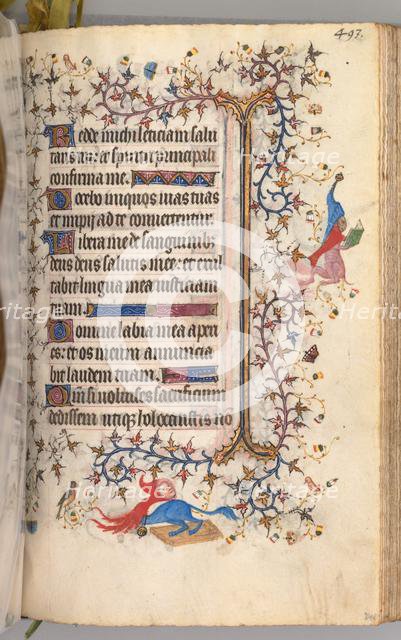 497.
Redde michi leticiam salu
taris tui: et spiritu principali
confirma me.
Docebo iniquos uias tuas
et impij ad te conuertentur.
Libera me de sanguinib
deus deus salutis mee: et exul
tabit lingua mea iusticiam
tuam.
Domine labia mea aperi
es: et os meum annuncia
bit laudem tuam.
Qm si uoluisses sacrificium
dedissem utiqz holocaustis no
Heritage
Heritage
Heritage
Heritage
Heritage
Heritage